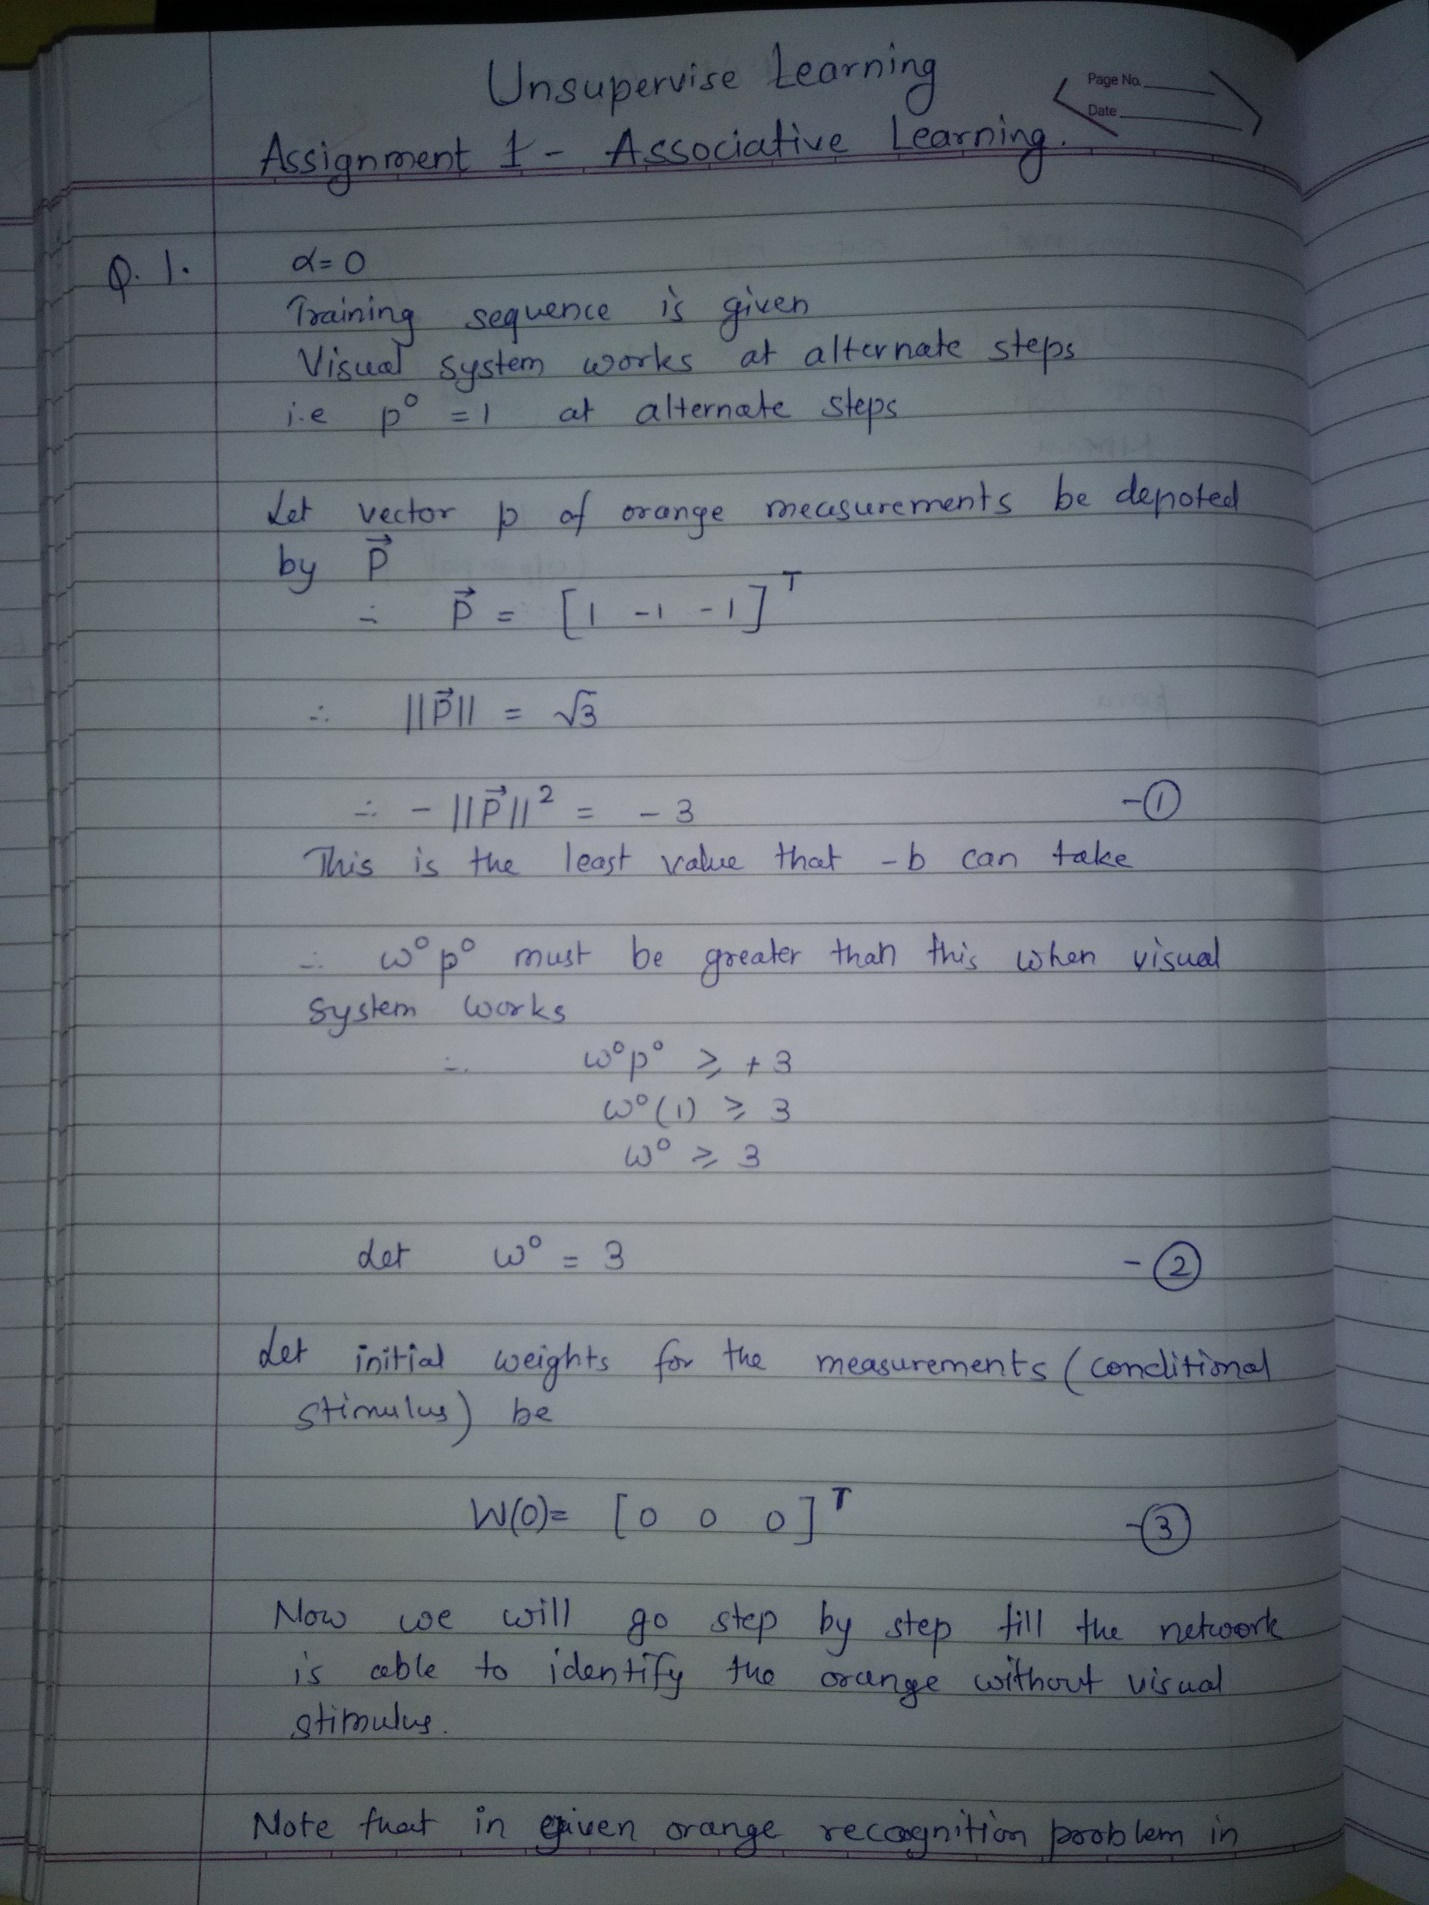 Unsupervise Learning
Page No.
Date
Assignment 1 - Associative Learning.
Q. 1. α = 0
Training sequence is given
Visual system works at alternate steps
i.e p⁰ = 1 at alternate steps
Let vector p of orange measurements be denoted
by P⃗
∴ P⃗ = [1 -1 -1]ᵀ
∴ ||P⃗|| = √3
∴ - ||P⃗||² = - 3 -①
This is the least value that -b can take
∴ w⁰p⁰ must be greater than this when visual
system works
∴ w⁰p⁰ ⩾ +3
w⁰(1) ⩾ 3
w⁰ ⩾ 3
Let w⁰ = 3 -②
Let initial weights for the measurements (conditional
stimulus) be
W(0)= [0 0 0]ᵀ -③
Now we will go step by step till the network
is able to identify the orange without visual
stimulus.
Note that in given orange recognition problem in